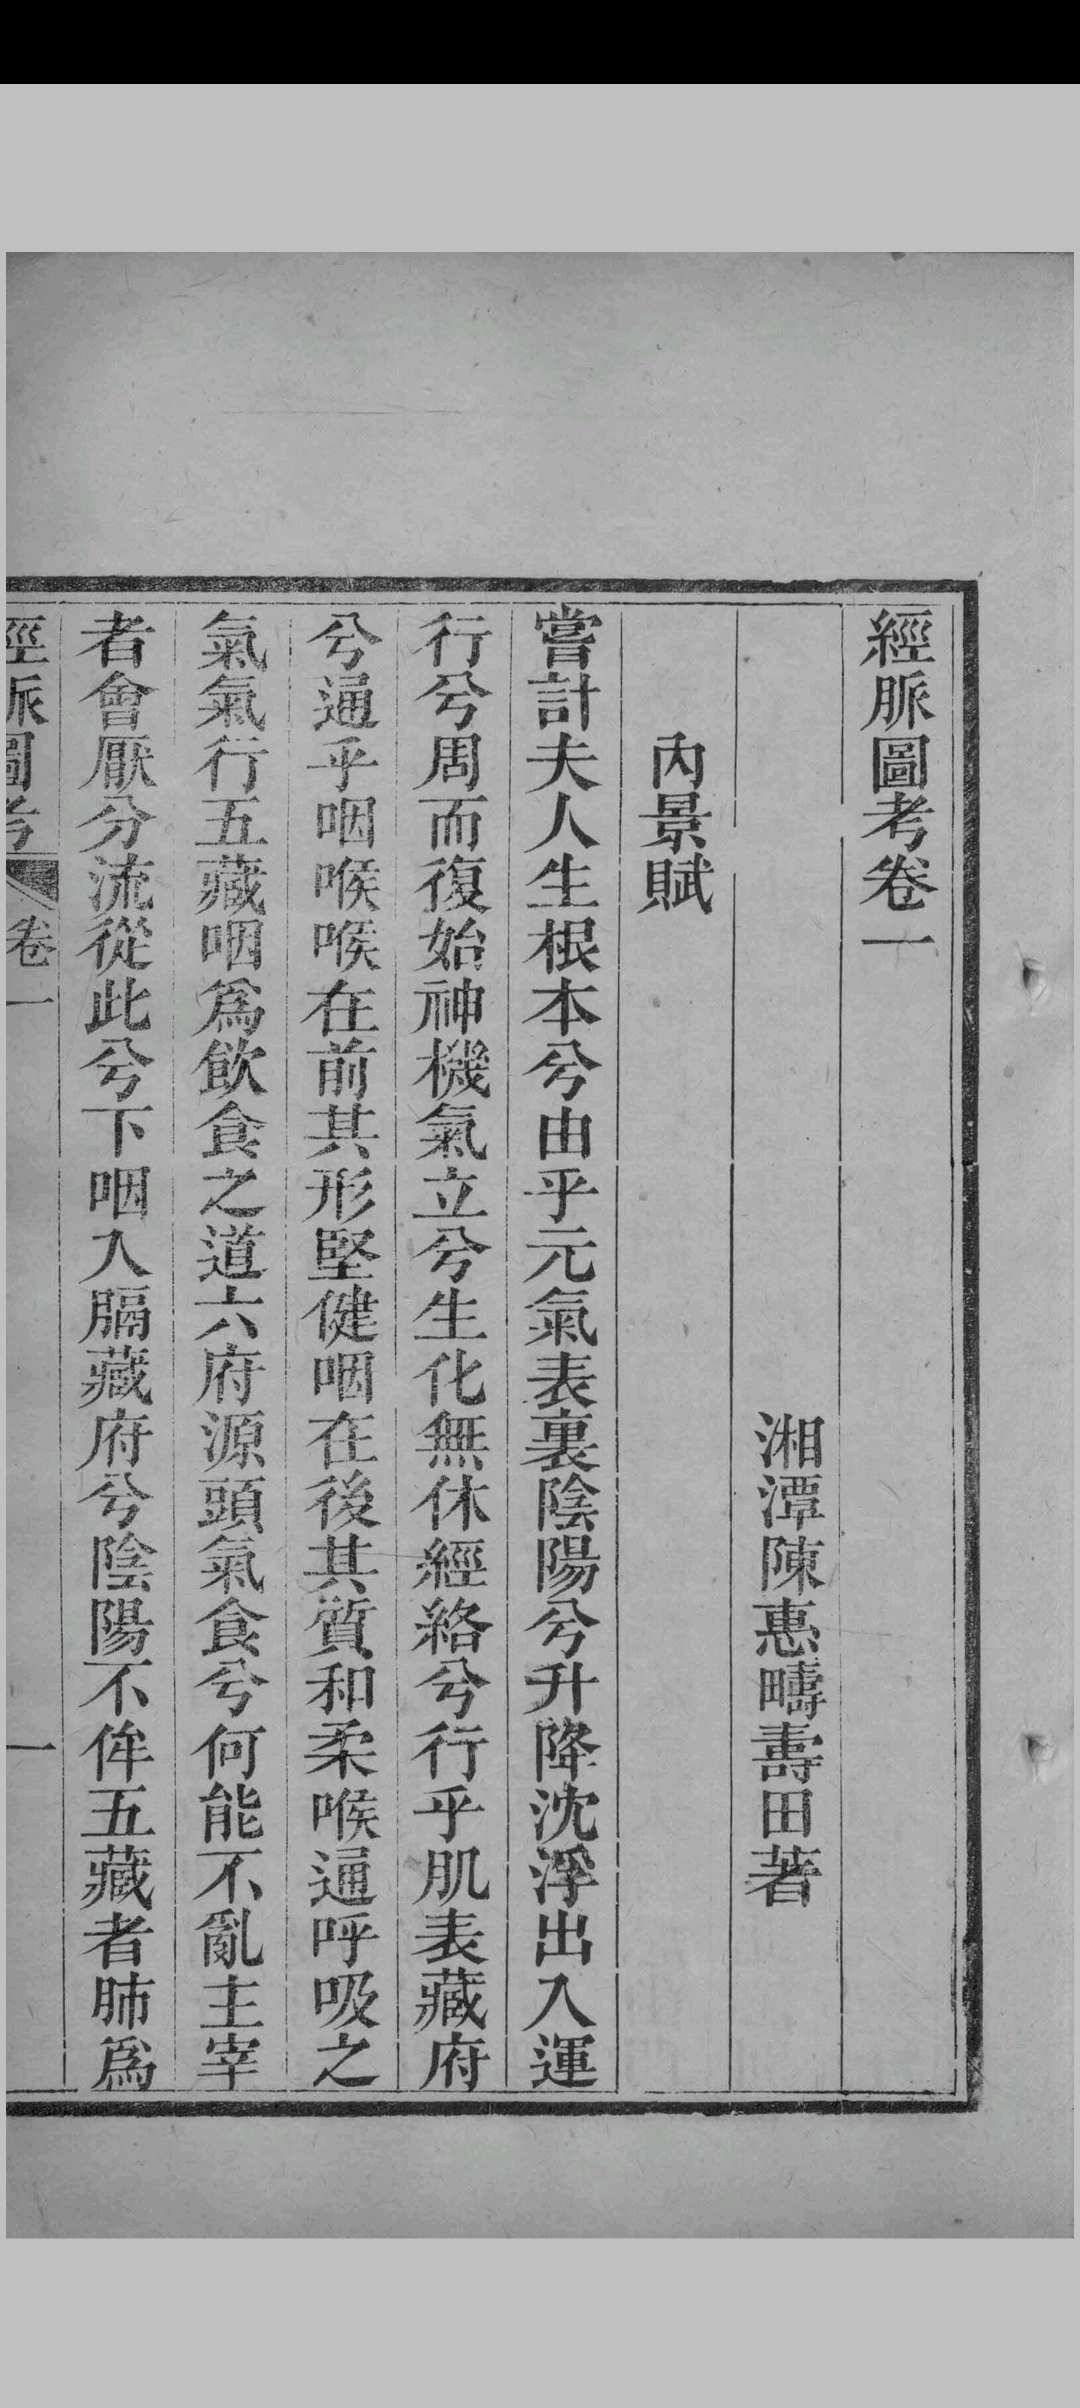 經脈圖考卷一
湘潭陳惠疇壽田著
內景賦
嘗計夫人生根本兮由乎元氣表裏陰陽兮升降沈浮出入運
行兮周而復始神機氣立兮生化無休經絡兮行乎肌表藏府
兮通乎咽喉喉在前其形堅健咽在後其質和柔喉通呼吸之
氣氣行五藏咽爲飮食之道六府源頭氣食兮何能不亂主宰
者會厭分流從此兮下咽入膈藏府兮陰陽不侔五藏者肺爲
經脈圖考 卷一 一